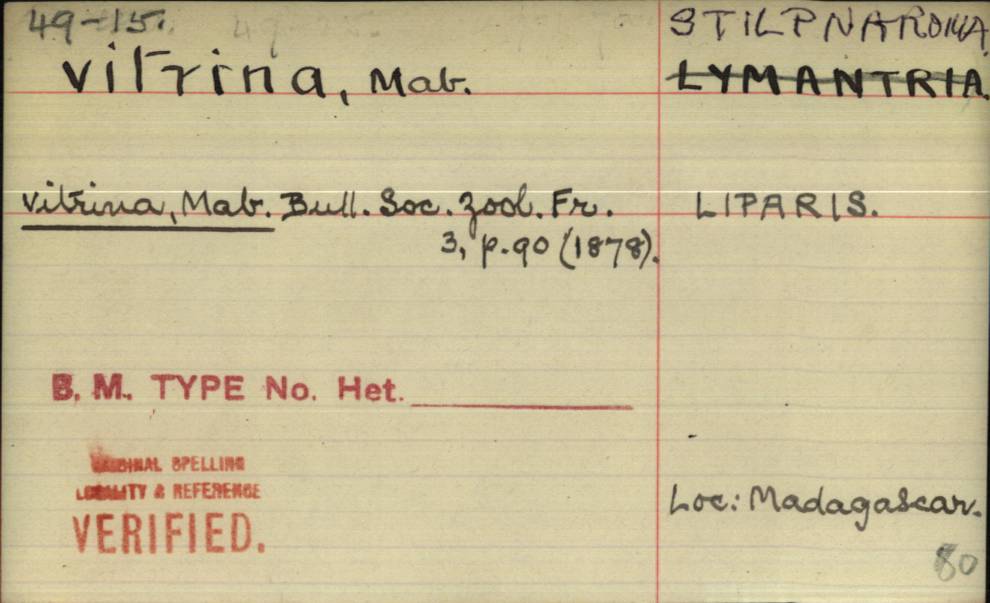 49-15.
STILPNAROMA.
vitrina, Mab.
LYMANTRIA.
vitrina, Mab. Bull. Soc. Zool. Fr.
LIPARIS.
3, p.90 (1878).
B. M. TYPE No. Het.
ORIGINAL SPELLING
LOCALITY & REFERENCE
VERIFIED.
Loc: Madagascar.
80